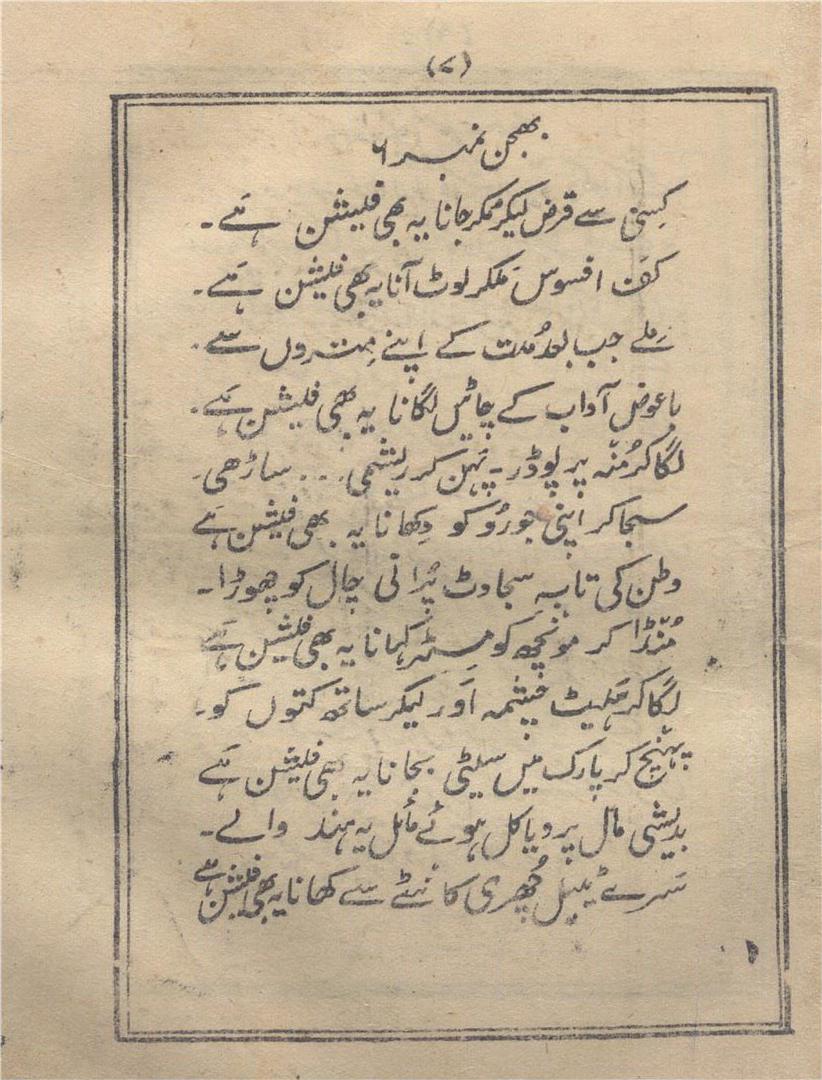 (۷)
بھجن نمبر ۶
کِسی سے قرض لیکر مکر جانا یہ بھی فیشن ہَے۔
کفِ افسوس مَلکر لوٹ آنا یہ بھی فیشن ہَے۔
مِلے جب بعد مُدت کے اپنے مِتروں سے۔
باعوض آداب کے چاٹیں لگانا یہ بھی فیشن ہَے۔
لگا کر مُنّہ پر پوڈر۔ پہن کر ریشمی... ساڑھی۔
سجا کر اپنی جورُو کو دِکھانا یہ بھی فیشن ہَے
وطن کی تابہِ سجاوٹ پُرانی چال کو چھوڑا۔
مُنّڈا کر مونچھ کو مِسٹر کہانا یہ بھی فیشن ہَے
لگا کر ہَیٹ چشمہ اَور لیکر ساتھ کتوں کو۔
پہنّچ کر پارک میں سیٹی بجانا یہ بھی فیشن ہَے
بدیشی مال پر ویاکل ہوئے مائل یہ ہند والے۔
سَرے ٹیبل چُھری کانٹے سے کھانا یہ بھی فیشن ہَے